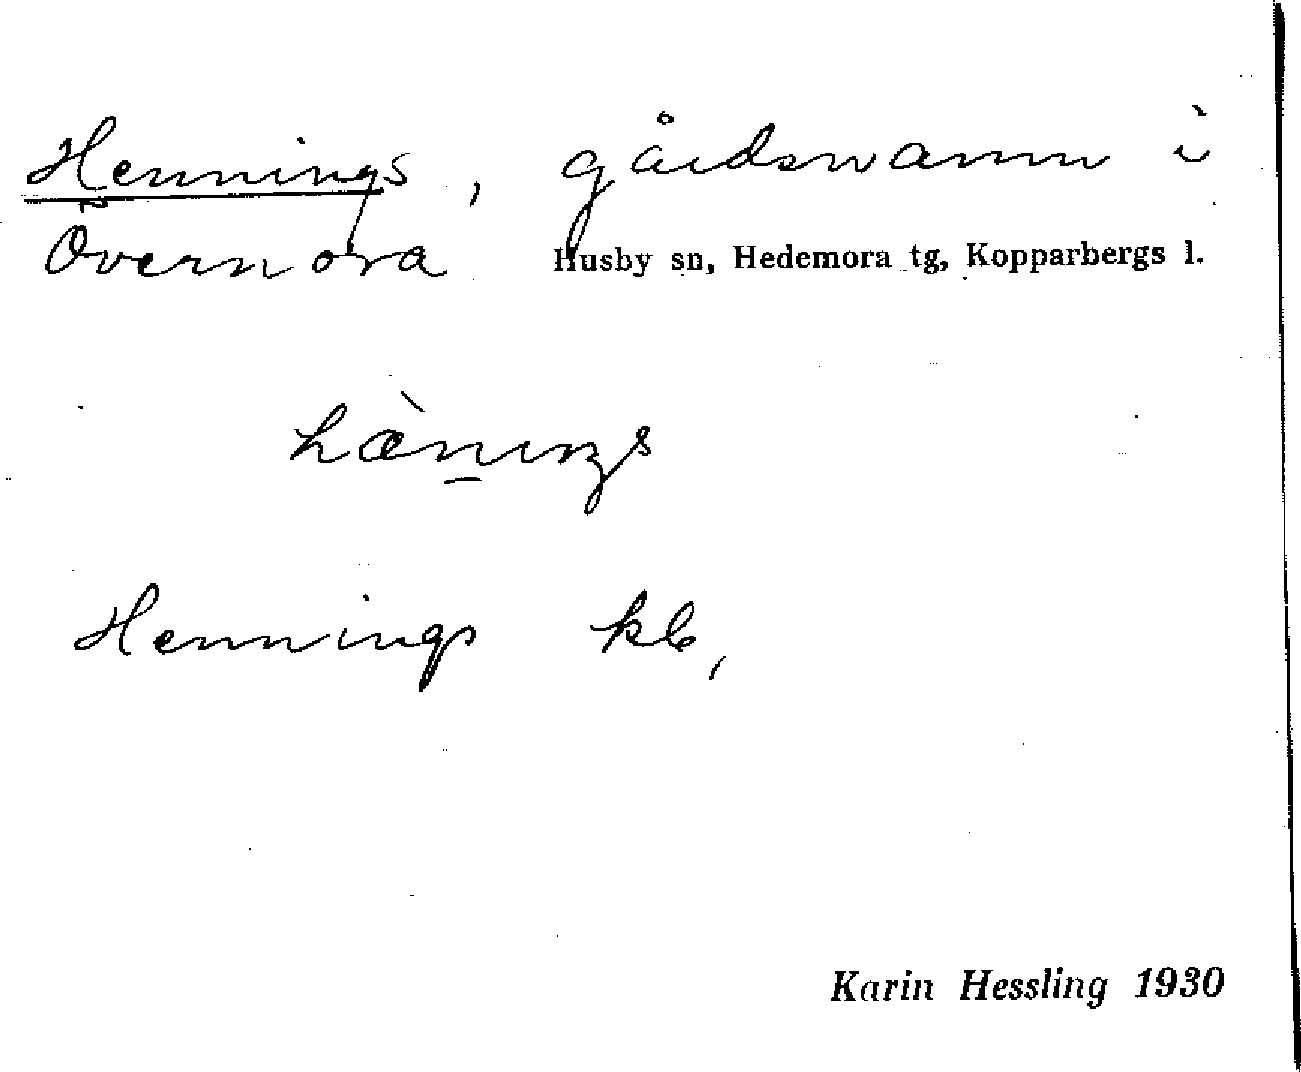 Hennings, gårdsnamn i
Övernora Husby sn, Hedemora tg, Kopparbergs l.
hæ̀n̠ıŋs
Hennings kb,
Karin Hessling 1930